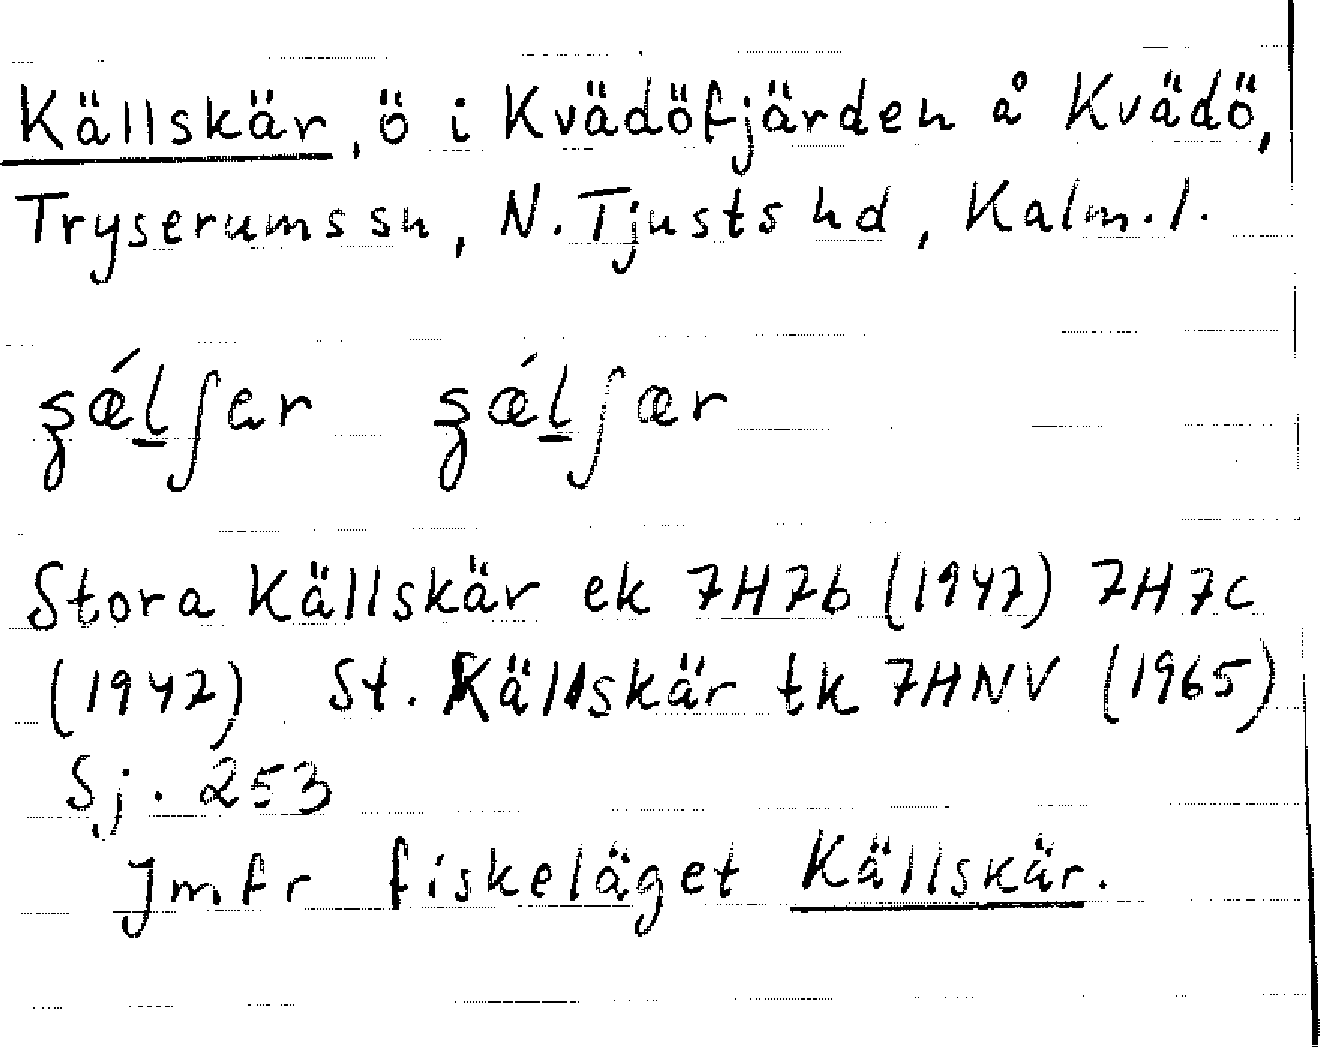 Källskär, ö i Kvädöfjärden å Kvädö,
Tryserums sn, N. Tjusts hd, Kalm. l.
Stora Källskär ek 7H7b (1947) 7H7c
(1947) St. Källskär tk 7HNV (1965)
Sj. 253
Jmfr fiskeläget Källskär.